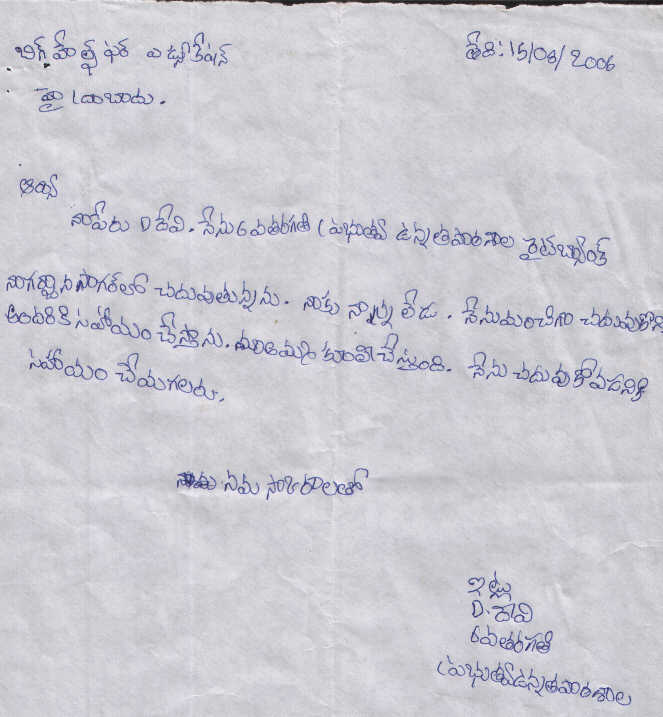 బిగ్ హెల్ప్ ఫర్ ఎడ్యుకేషన్
తేది: 15/08/2006
హైదరాబాదు.
ఆర్య
నాపేరు D రవి. నేను 6 వతరగతి ప్రభుత్వ ఉన్నతపాఠశాల రైట్‌బ్యాంక్
నాగార్జున సాగర్‌లో చదువుతున్నాను. నాకు నాన్న లేడు. నేనుమంచిగా చదువుకొని
అందరికి సహాయం చేస్తాను. మాఅమ్మ కూలిచేస్తుంది. నేను చదువుకోవడనికి
సహాయం చేయగలరు.
నమ సారాలతో
ఇట్లు
D. రవి
6వతరగతి
ప్రభుత్వఉన్నతపాఠశాల